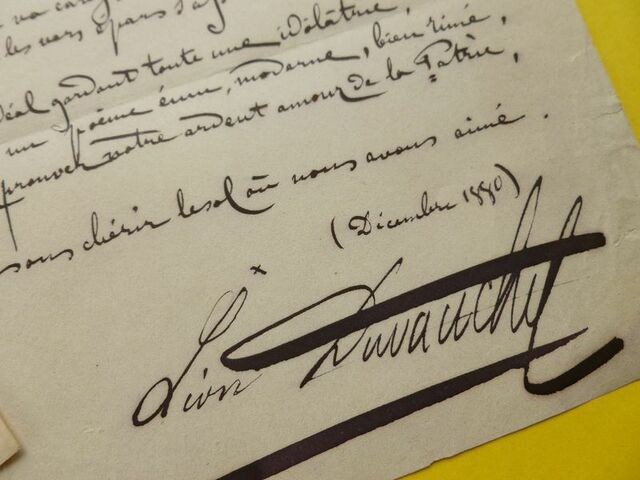 va
les vers épars s'a
idéal gardant toute une idolâtrie,
un poème ému, moderne, bien rimé,
prouver notre ardent amour de la Patrie,
sous chérir le sol où nous avons aimé.
(Décembre 1880)
Léon Duvauchel